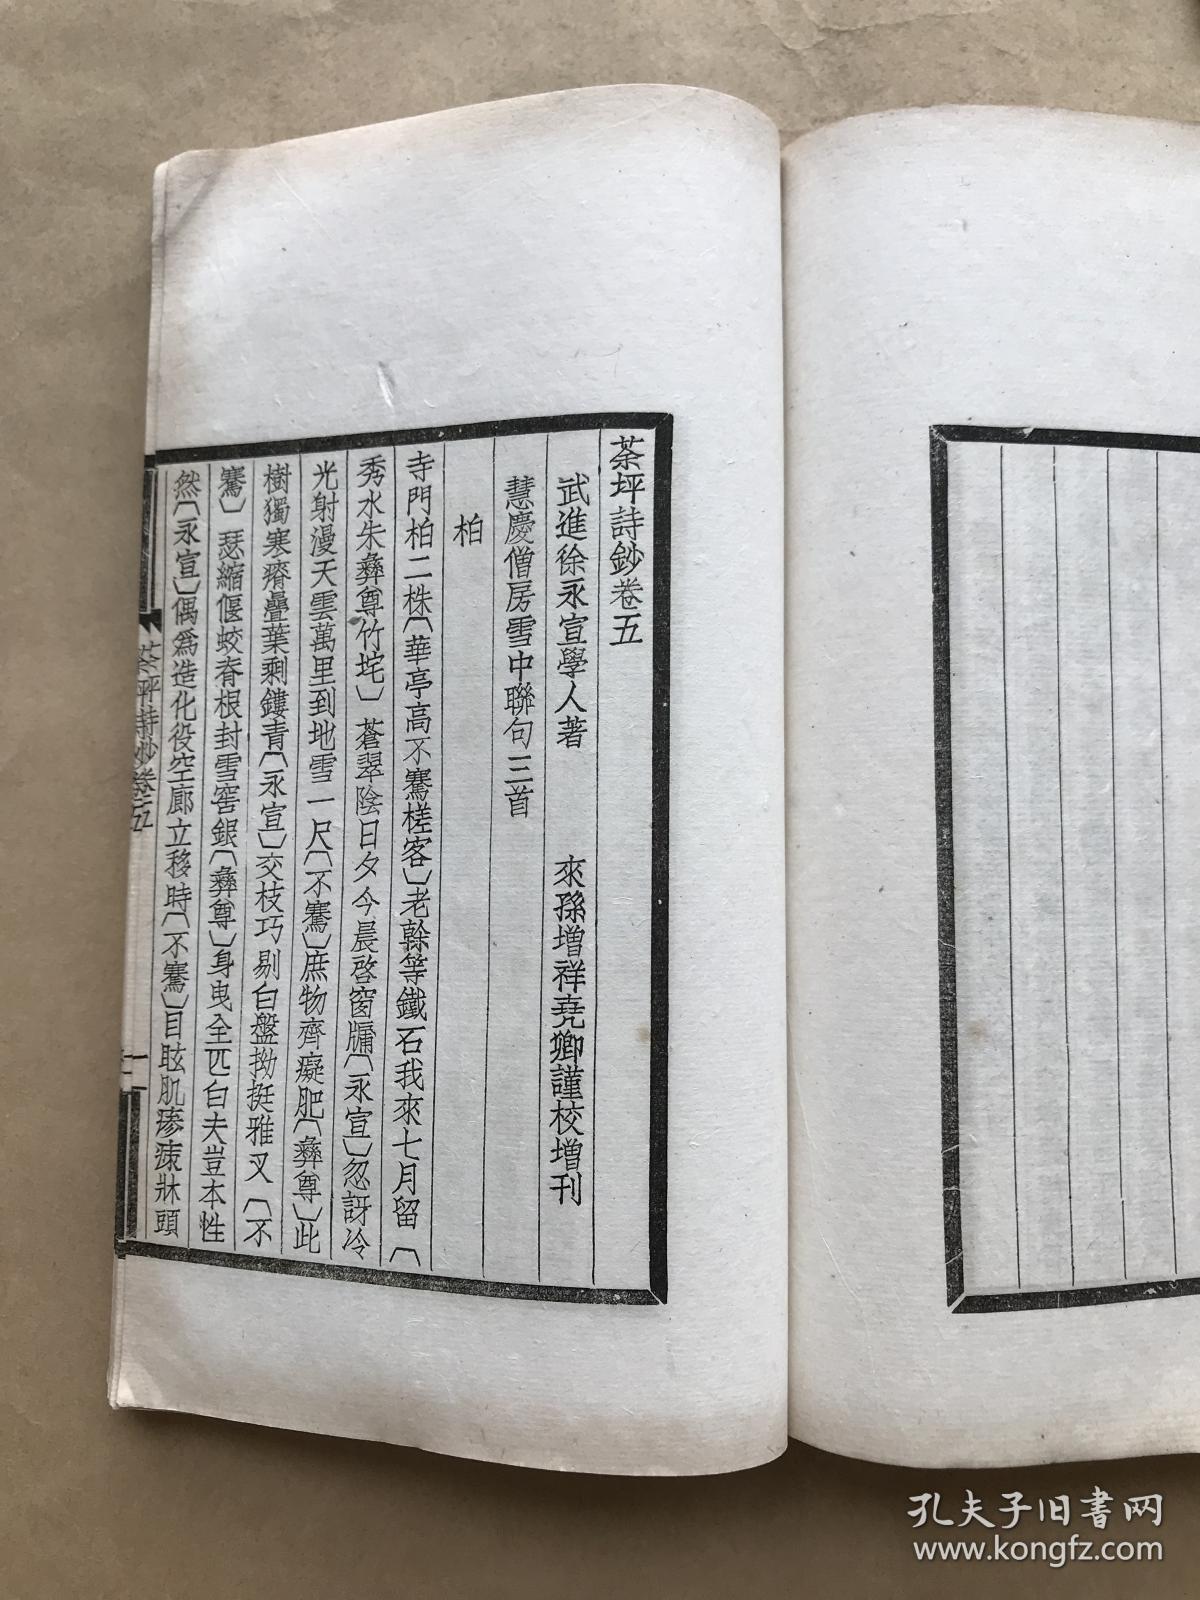 茶坪詩鈔卷五
武進徐永宣學人著　來孫增祥堯卿謹校增刊
慧慶僧房雪中聯句三首
柏
寺門柏二株〔華亭高不騫槎客〕老榦等鐵石我來七月留〔
秀水朱彝尊竹垞〕蒼翠陰日夕今晨啓窗牖〔永宣〕忽訝冷
光射漫天雲萬里到地雪一尺〔不騫〕庶物齊癡肥〔彝尊〕此
樹獨寒瘠疊葉剩鏤青〔永宣〕交枝巧剔白盤拗挺雅叉〔不
騫〕瑟縮偃蛟脊根封雪窖銀〔彝尊〕身曳全匹白夫豈本性
然〔永宣〕偶爲造化役空廊立移時〔不騫〕目眩肌瘆涑牀頭
茶坪詩鈔卷五
一
孔夫子旧書网
www.kongfz.com